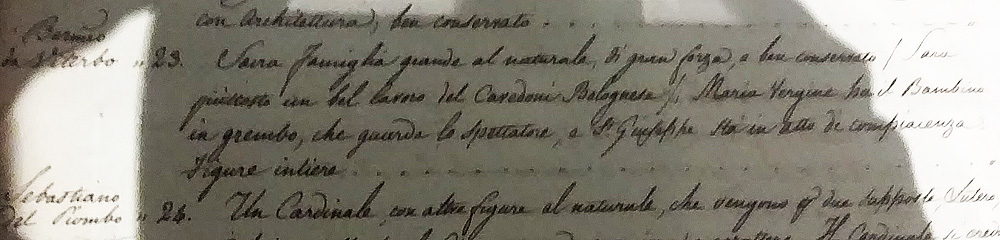 con Architettura, ben conservato . . .
da Viterbo n 23. Sacra famiglia grande al naturale, di gran forza, e ben conservato / Sarà
piuttosto un bel lavoro del Cavedoni Bolognese /, Maria Vergine ha il Bambino
in grembo, che guarda lo spettatore, e St Giuseppe sta in atto di compiacenza
Figure intiere . . . .
Sebastiano
del Piombo n 24. Un Cardinale, con altre figure al naturale, che vengono pr due supposte,
Il Cardinale si